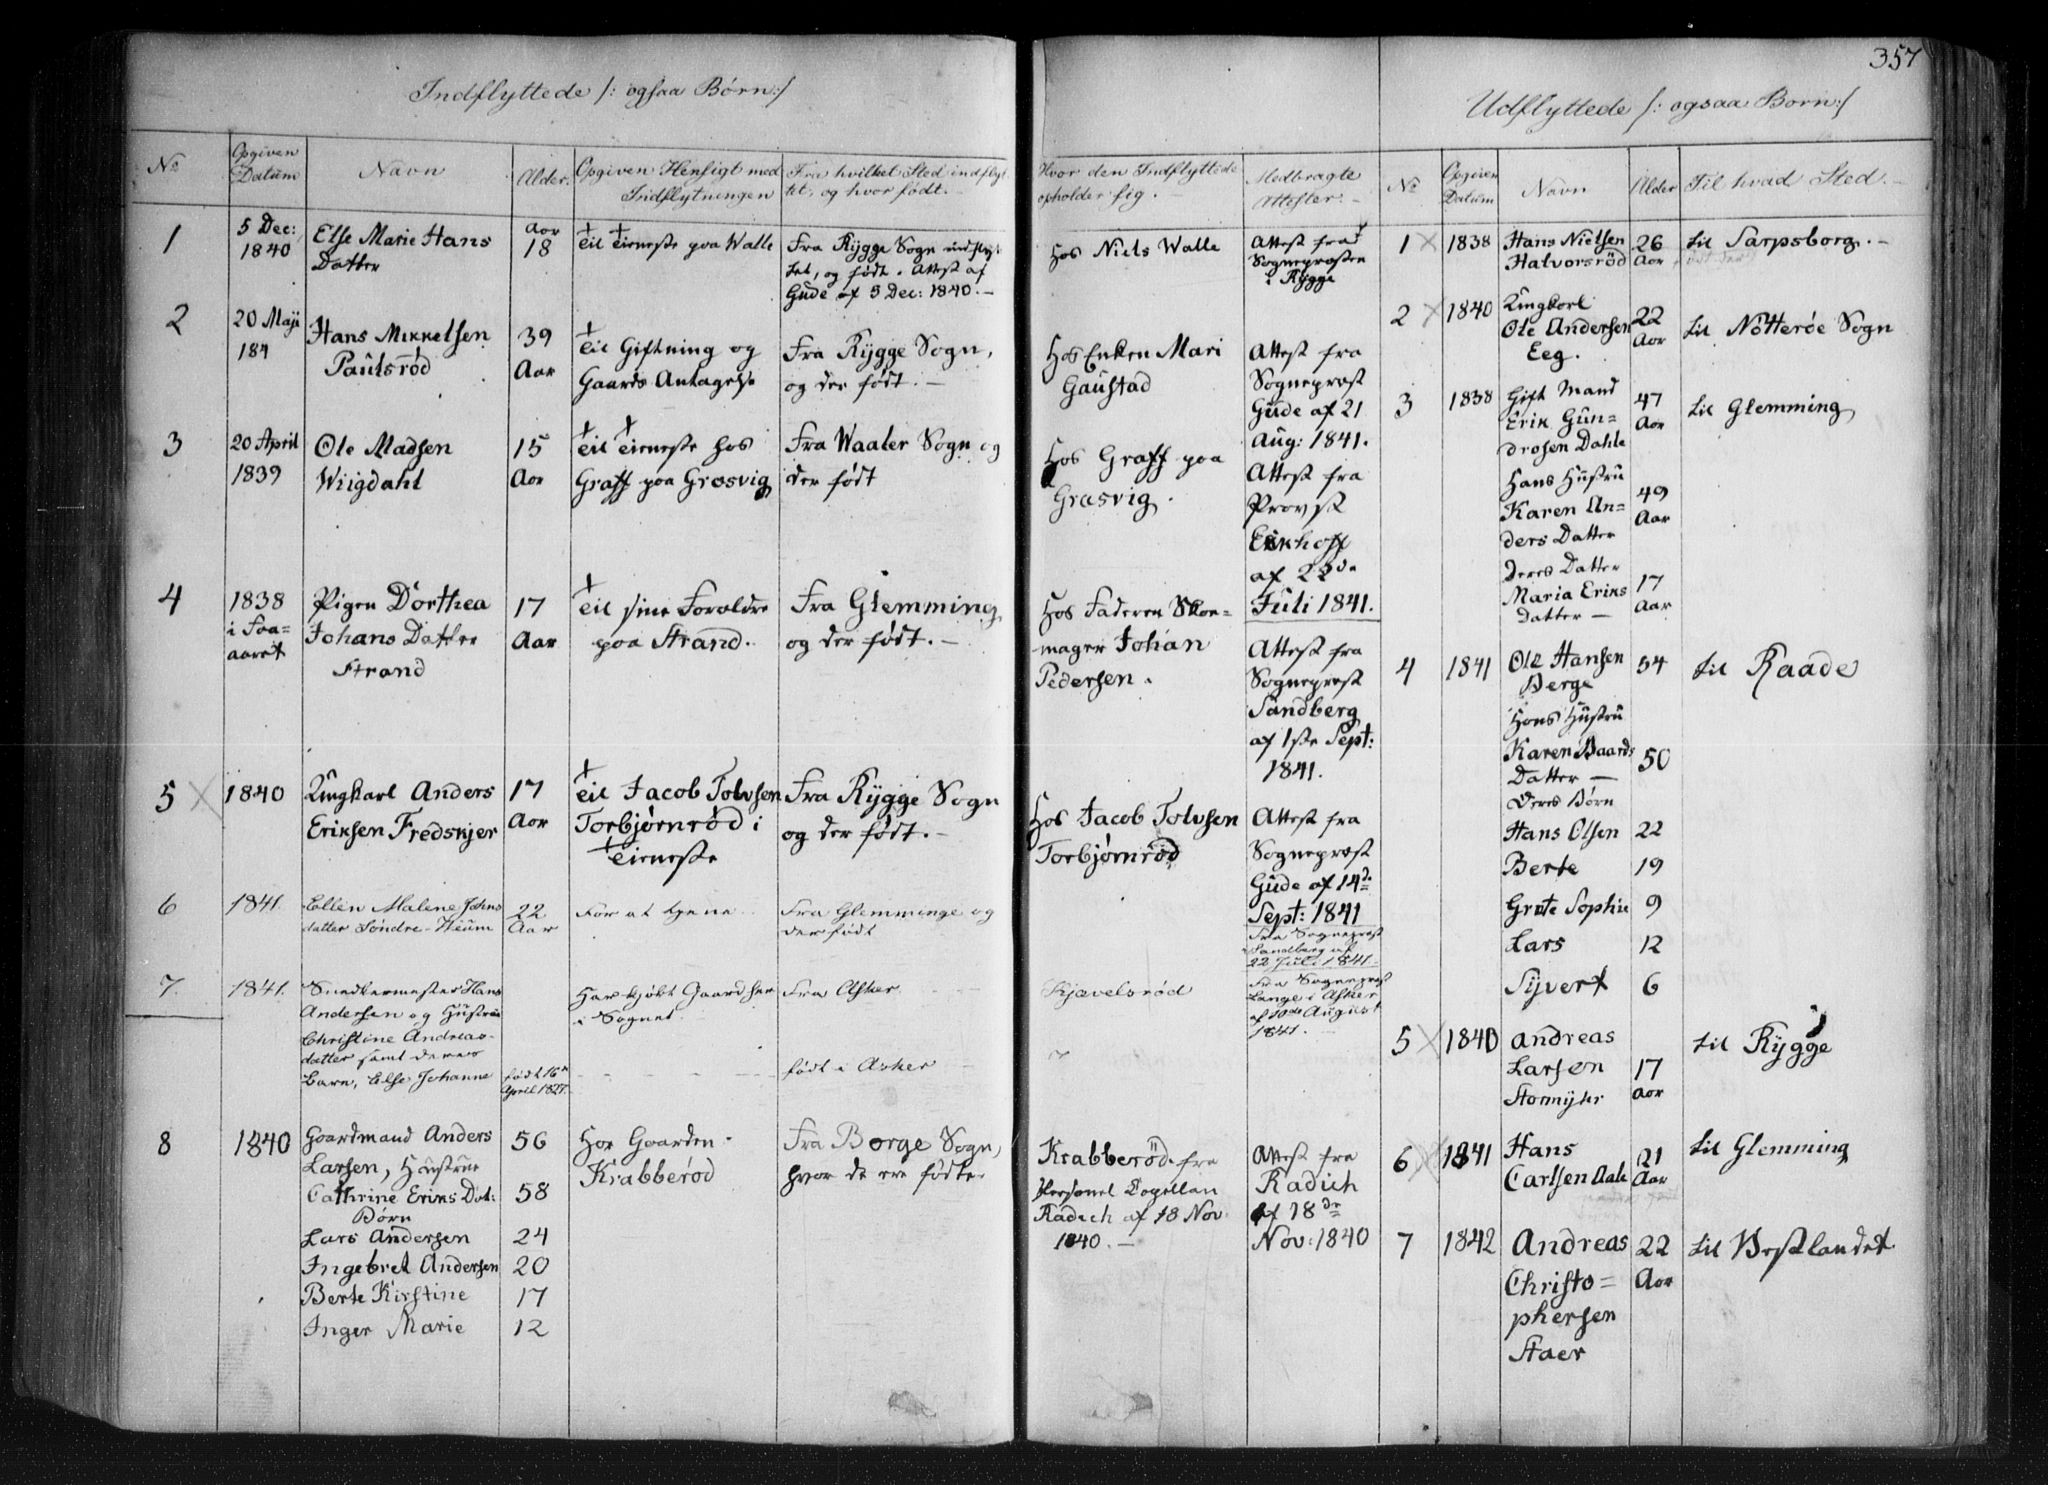 357
Indflyttede /: ogsaa Børn:/
No
Opgiven Datum
Navn
Alder.
Opgiven Hensigt med
Indflytningen
Fra hvilket Sted indflyt
tet, og hvor født. -
Hvor den Indflyttede
opholder sig. -
Medbragte
Attester. -
1
5 Dec:
1840
Else Marie Hans
Datter
Aar
18
Til Tieneste paa Walle
Fra Rÿgge Sogn indflyt
tet, og født. Attest af
Gude af 5 Dec: 1840. -
Hos Niels Walle
Attest fra
Sognepræsten
i Rÿgge
2
20 Maji
184
Hans Mikkelsen
Paulsrød
39
Aar
Til Giftning og
Gaards Antagelse
Fra Rÿgge Sogn,
og der født. -
Hos Enken Mari
Gaustad
Attest fra
Sognepræst
Gude af 21
Aug: 1841.
3
20 April
1839
Ole Madsen
Wiigdahl
15
Aar
Til Tieneste hos
Graff paa Græsvig
Fra Waaler Sogn og
der født
Hos Graff paa
Græsvig.
Attest fra
Provst
af 22de
Juli 1841.
4
1838
i Foraaret
Pigen Dorthea
Johans Datter
Strand
17
Aar
Til sine Forældre
paa Strand.
Fra Glemming
og der født. -
Hos Faderen Skoe-
mager Johan
Pedersen.
Attest fra
Sognepræst
Sandberg
af 1ste Sept:
1841.
5
1840
Ungkarl Anders
Eriksen Fredskjer
17
Aar
Til Jacob Tolvsen
Torbjørnrød i
Tieneste
Fra Rÿgge Sogn
og der født. -
Hos Jacob Tolvsen
Torbjørnrød
Attest fra
Sognepræst
Gude af 14de
Sept: 1841
6
1841.
Ellen Malene Johns
datter Søndre-Hiüm
22
Aar
For at tjene
Fra Glemminge og
der født
Fra Sognepræst
Sandberg af
22 Juli 1841.
7.
1841.
Snedkermester Hans
Andersen og Hüstrü
Christine Andreas-
datter samt deres
Barn, Else Johanne
født 16de
April 1827.
Har kjøbt Gaard her
i Sognet
Fra Asker
født i Asker
Kjævelsrød
Fra Sognepræst
Lange i Asker
af 10de August
1841.
8
1840
Gaardmand Anders
Larsen, Hüstrüe
Cathrine Eriks Dat:
Børn
Lars Andersen
Ingebret Andersen
Berte Kirstine
Inger Marie
56
58
24
20
17
12
Har Gaarden
Krabberød
Fra Borge Sogn,
hvor de ere fødte
Krabberød. fra
Personel Capellan
Radich af 18 Nov.
1840. -
Attest fra
Radich
af 18de
Nov: 1840
Udflyttede /: ogsaa Børn:/
No
Opgiven Datum
Navn
Alder
Til hvad Sted. -
1
1838
Hans Nielsen
Halvorsrød
26
Aar
til Sarpsborg. -
2
1840
Ungkarl
Ole Andersen
Eeg.
22
Aar
til Nötterøe Sogn
3
1838
Gift Mand
Erik Gün-
drosen Dahle
47
Aar
til Glemming
Hans Hüstrü
Karen An-
ders Datter
49
Aar
Deres Datter
Maria Eriks
Datter -
17
Aar
4
1841
Ole Hansen
Berge
54
til Raade
Hans Hüstrü
Karen Baards
Datter -
50
Deres Børn
Hans Olsen 22
Berte 19
Grete Sophie 9
Lars 12
Syvert 6
5
1840
Andreas
Larsen
17
Aar
til Rÿgge
6
1841
Hans
Carlsen Dale
21
Aar
til Glemming
7
1842
Andreas
Christo=
phersen
Staer
22
Aar
til Vestlandet